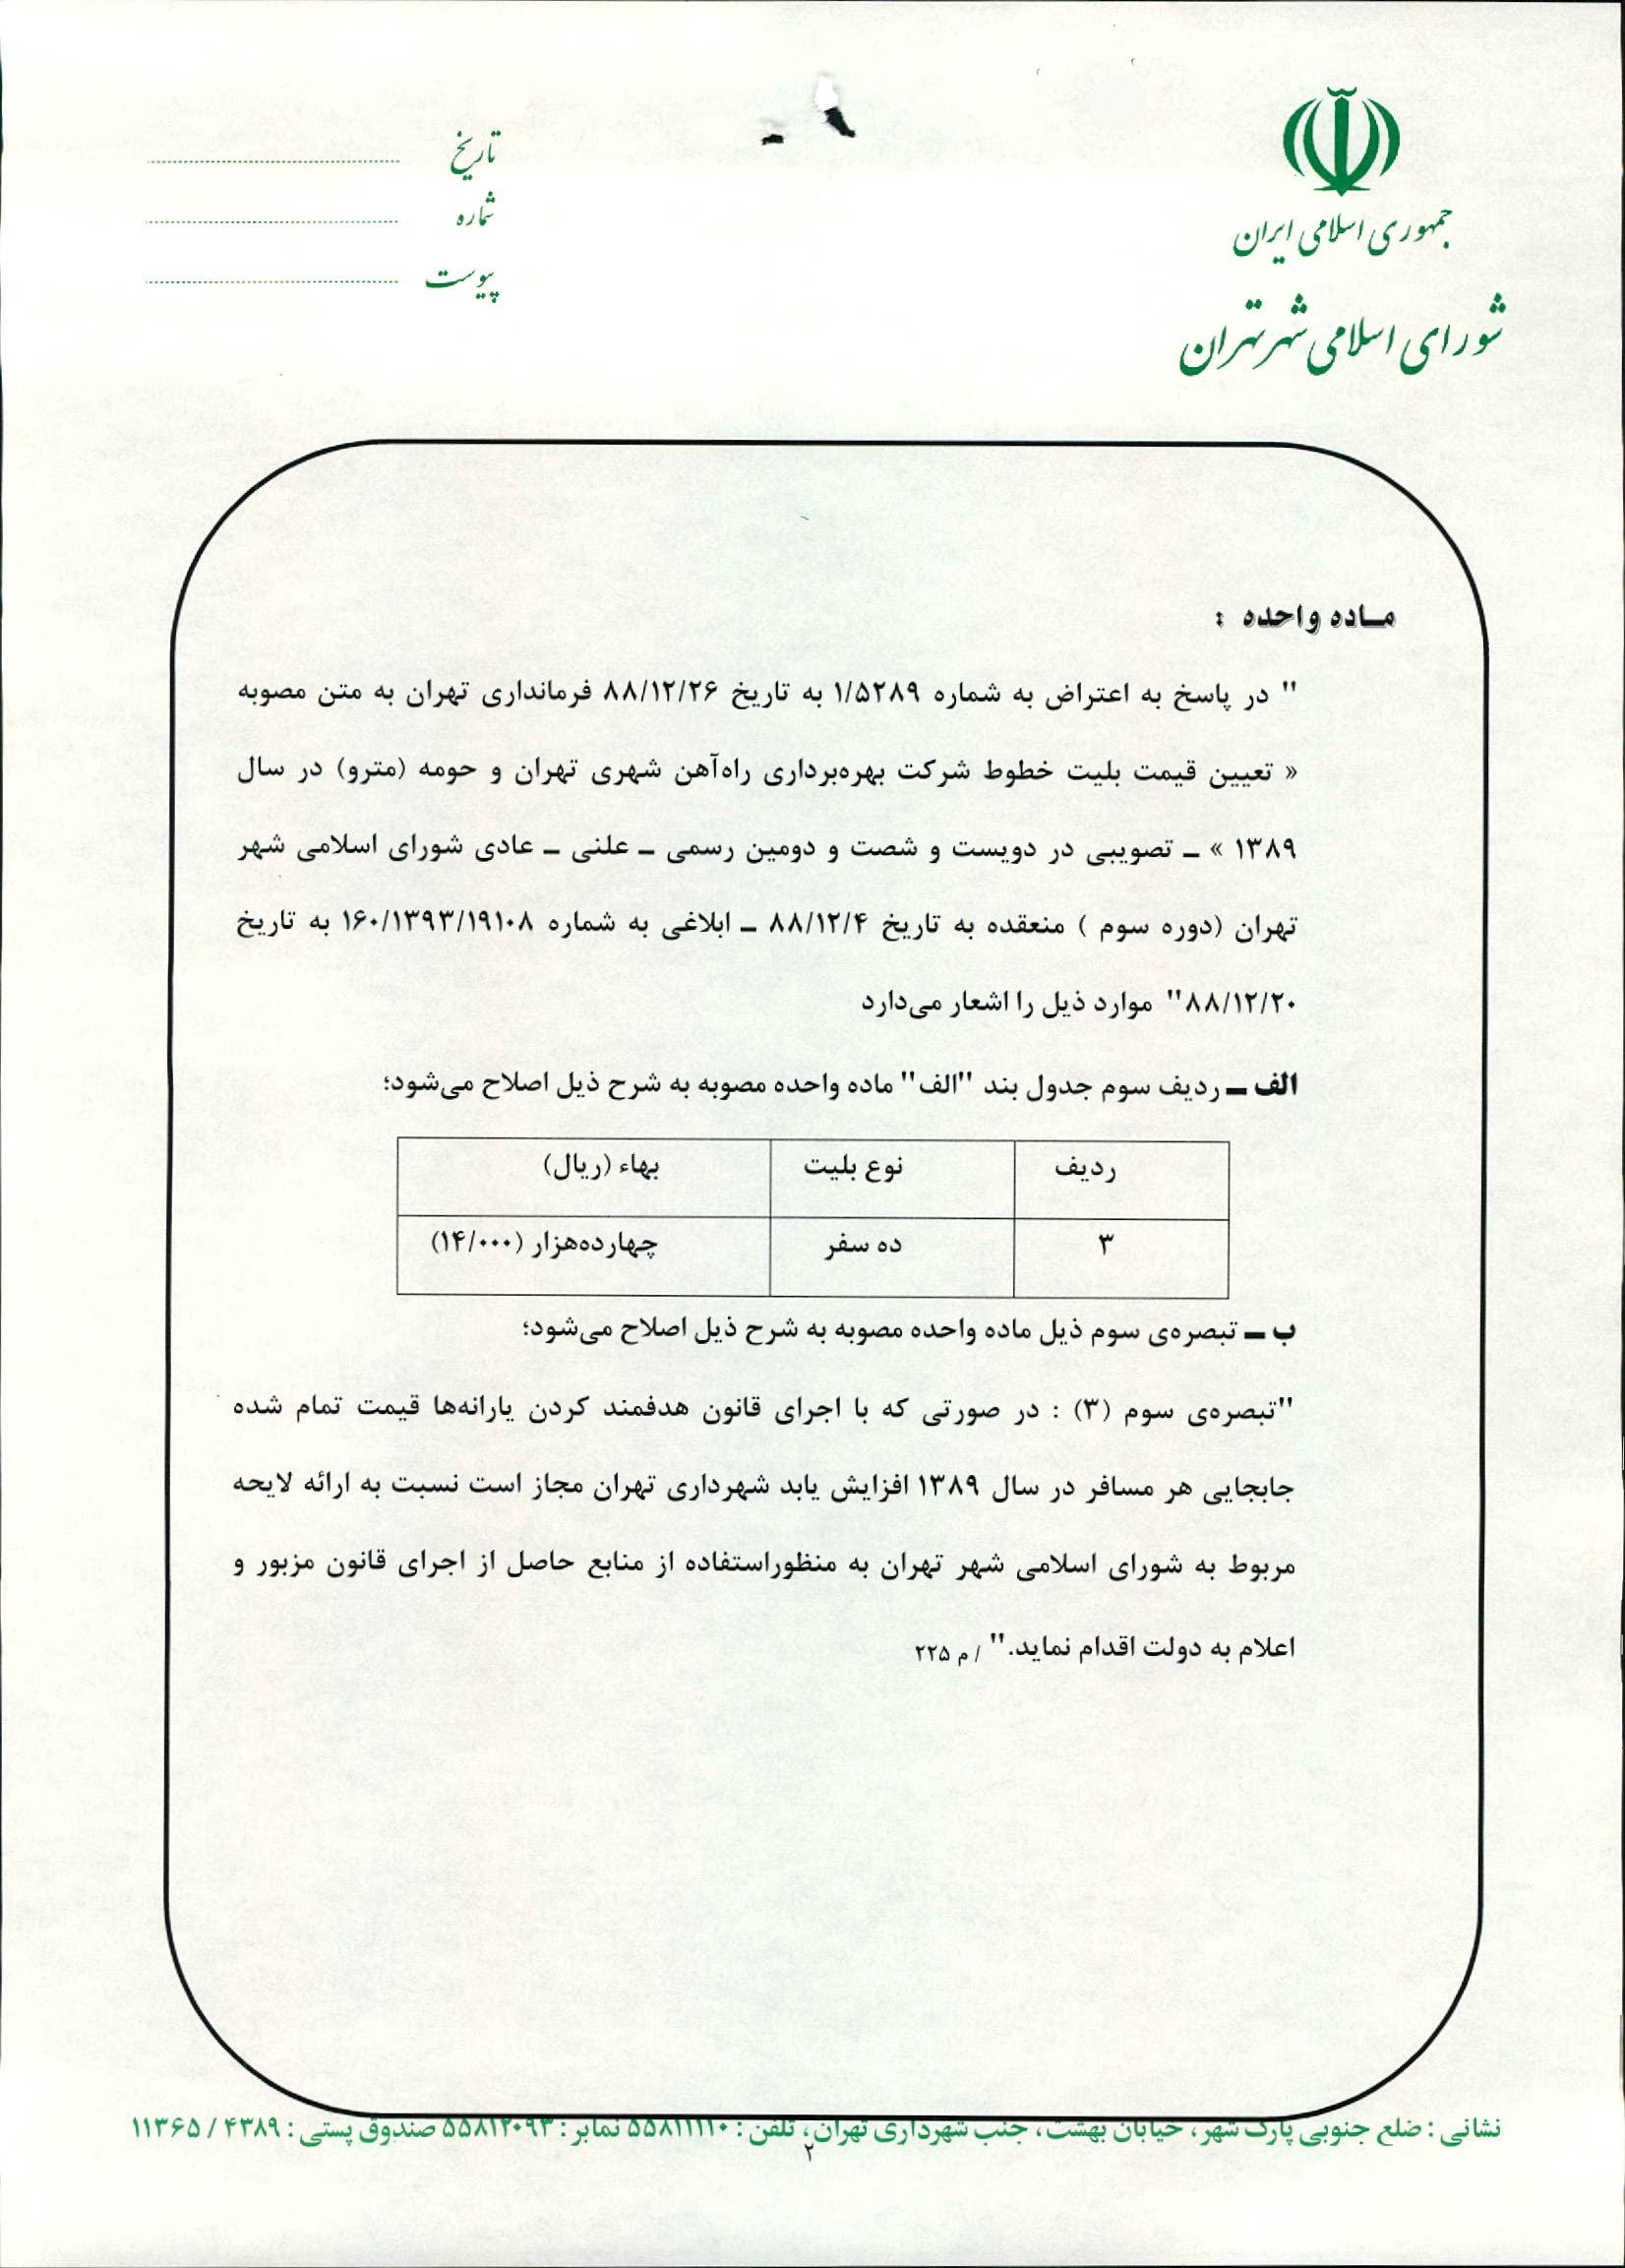 جمهوری اسلامی ایران
شورای اسلامی شهر تهران
تاریخ
شماره
پیوست
مـاده واحده :
" در پاسخ به اعتراض به شماره ۱/۵۲۸۹ به تاریخ ۸۸/۱۲/۲۶ فرمانداری تهران به متن مصوبه
« تعیین قیمت بلیت خطوط شرکت بهره‌برداری راه‌آهن شهری تهران و حومه (مترو) در سال
۱۳۸۹ » ـ تصویبی در دویست و شصت و دومین رسمی ـ علنی ـ عادی شورای اسلامی شهر
تهران (دوره سوم ) منعقده به تاریخ ۸۸/۱۲/۴ ـ ابلاغی به شماره ۱۶۰/۱۳۹۳/۱۹۱۰۸ به تاریخ
۸۸/۱۲/۲۰" موارد ذیل را اشعار می‌دارد
الف ـ ردیف سوم جدول بند "الف" ماده واحده مصوبه به شرح ذیل اصلاح می‌شود؛
ردیف نوع بلیت بهاء (ریال)
۳ ده سفر چهارده‌هزار (۱۴/۰۰۰)
ب ـ تبصره‌ی سوم ذیل ماده واحده مصوبه به شرح ذیل اصلاح می‌شود؛
"تبصره‌ی سوم (۳) : در صورتی که با اجرای قانون هدفمند کردن یارانه‌ها قیمت تمام شده
جابجایی هر مسافر در سال ۱۳۸۹ افزایش یابد شهرداری تهران مجاز است نسبت به ارائه لایحه
مربوط به شورای اسلامی شهر تهران به منظوراستفاده از منابع حاصل از اجرای قانون مزبور و
اعلام به دولت اقدام نماید." / م ۲۲۵
نشانی : ضلع جنوبی پارک شهر، خیابان بهشت، جنب شهرداری تهران، تلفن : ۵۵۸۱۱۱۱۰ نمابر : ۵۵۸۱۲۰۹۳ صندوق پستی : ۴۳۸۹ / ۱۱۳۶۵
۲